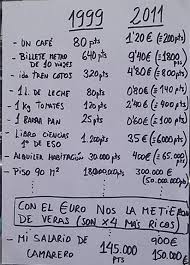 1999 2011
- UN CAFÉ 80 pts 1'20 € (≡200 pts)
- BILLETE METRO DE 10 VIAJES 640 pts 9'40 € (≡1800 pts)
- ida TREN CATOS 320 pts 4'80 € (≡800 pts)
- 1 L. DE LECHE 80 pts 0'80 € (≡140 pts)
- 1 kg TOMATES 120 pts 2'40 € (≡400 pts)
- 1 BARRA PAN 25 pts 0'60 € (≡100 pts)
- LIBRO CIENCIAS 1º DE ESO 1.200 pts 35 € (≡6000 pts)
- ALQUILER HABITACIÓN 30.000 pts 400 € (≡65.000 pts)
- PISO 90 m² pts 300.000 € (50.000.000 pts)
CON EL €URO NOS LA METIERON
DE VERAS (SON x4 MÁS RICOS)
- MI SALARIO DE CAMARERO 145.000 pts 900 € 150.000